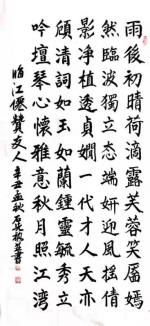 雨後初晴荷滴露芙蓉笑靨嫣
然臨波獨立态端妍迎風搖倩
影凈植透貞嫻一代才人天亦
清詞如玉如蘭鍾靈毓秀立
吟壇琴心懷雅意秋月照江湾
臨江僊贊友人 辛丑孟秋 書